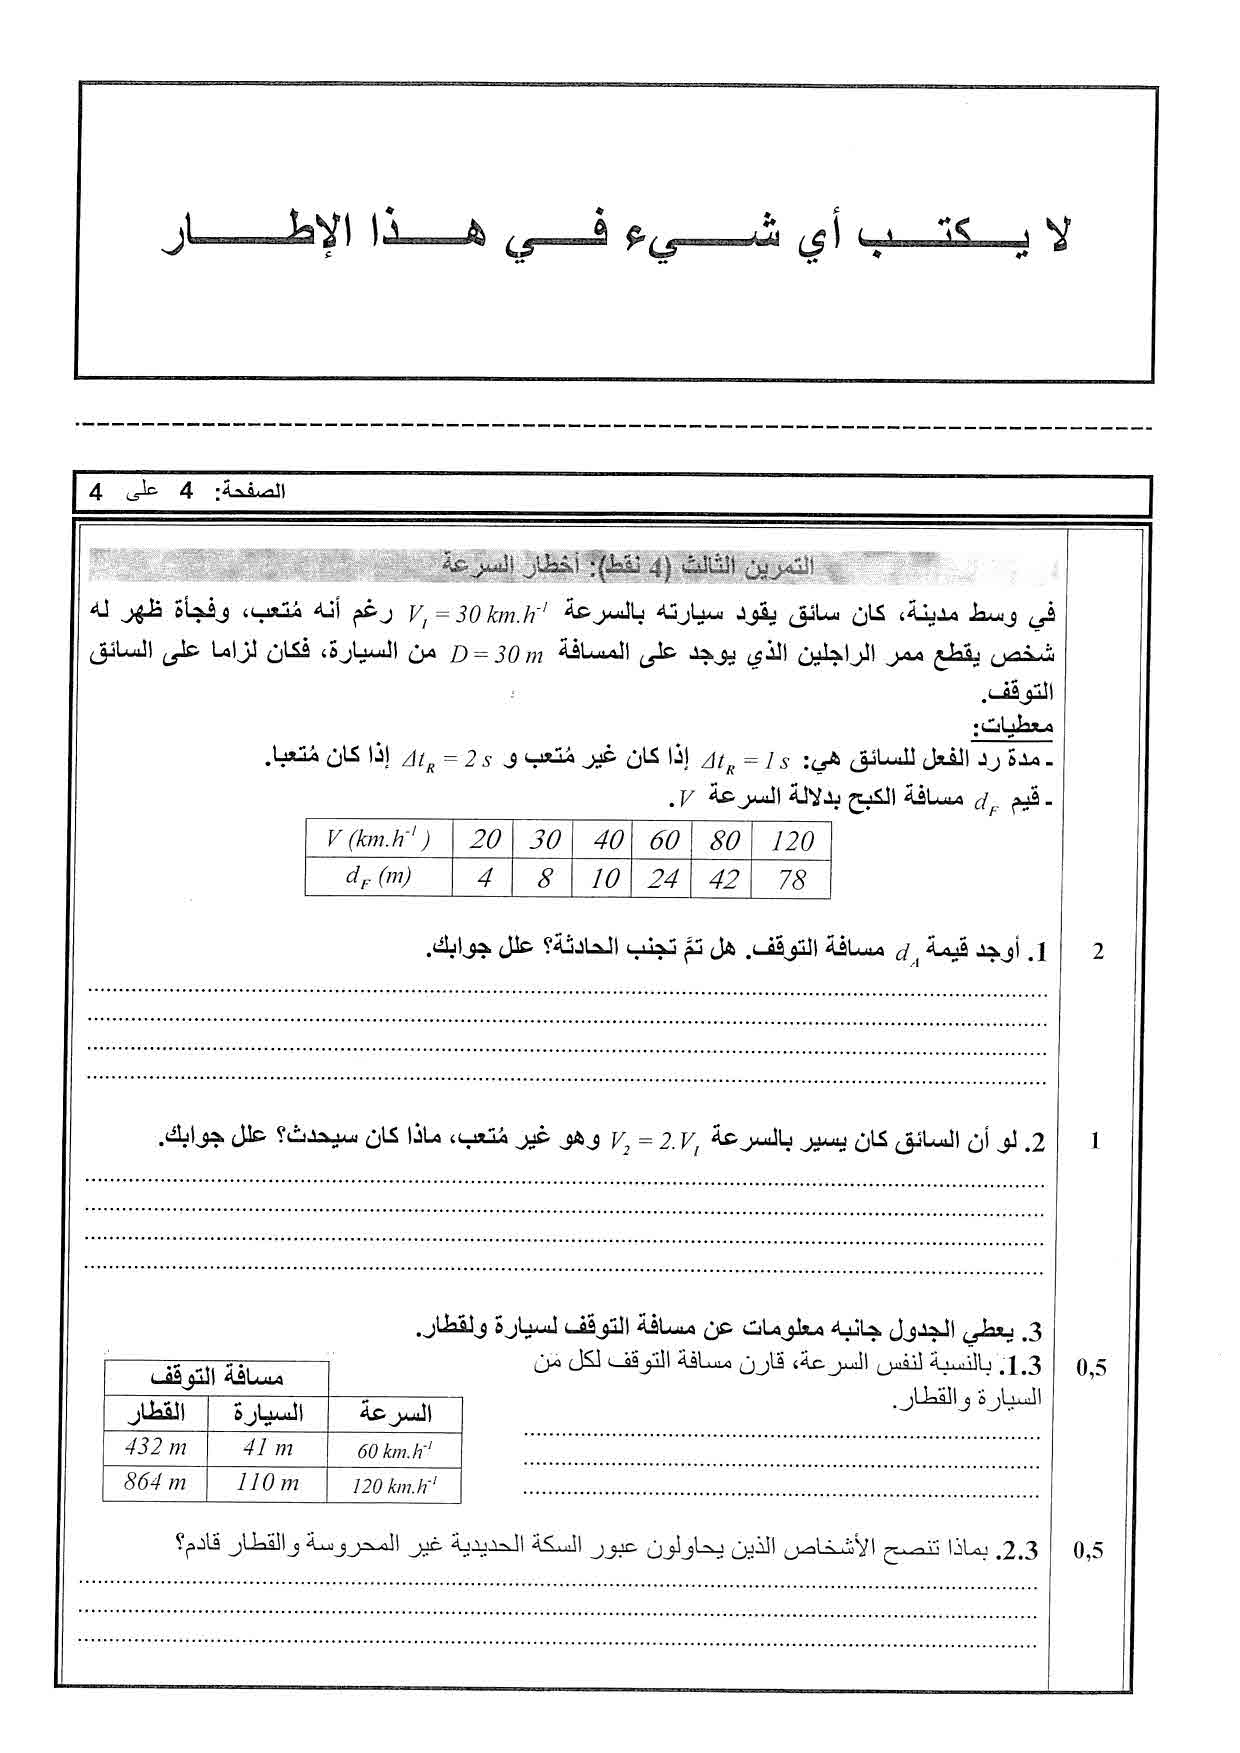 لا يكتب أي شيء في هذا الإطار
الصفحة: 4 على 4
التمرين الثالث (4 نقط): أخطار السرعة
في وسط مدينة، كان سائق يقود سيارته بالسرعة V₁ = 30 km.h⁻¹ رغم أنه مُتعب، وفجأة ظهر له
شخص يقطع ممر الراجلين الذي يوجد على المسافة D = 30 m من السيارة، فكان لزاما على السائق
التوقف.
معطيات:
- مدة رد الفعل للسائق هي: Δt_R = 1 s إذا كان غير مُتعب و Δt_R = 2 s إذا كان مُتعبا.
- قيم d_F مسافة الكبح بدلالة السرعة V.
V (km.h⁻¹) 20 30 40 60 80 120
d_F (m) 4 8 10 24 42 78
1. أوجد قيمة d_A مسافة التوقف. هل تمَّ تجنب الحادثة؟ علل جوابك. 2
2. لو أن السائق كان يسير بالسرعة V₂ = 2.V₁ وهو غير مُتعب، ماذا كان سيحدث؟ علل جوابك. 1
3. يعطي الجدول جانبه معلومات عن مسافة التوقف لسيارة ولقطار.
1.3. بالنسبة لنفس السرعة، قارن مسافة التوقف لكل من 0,5
السيارة والقطار.
مسافة التوقف
السرعة السيارة القطار
60 km.h⁻¹ 41 m 432 m
120 km.h⁻¹ 110 m 864 m
2.3. بماذا تنصح الأشخاص الذين يحاولون عبور السكة الحديدية غير المحروسة والقطار قادم؟ 0,5